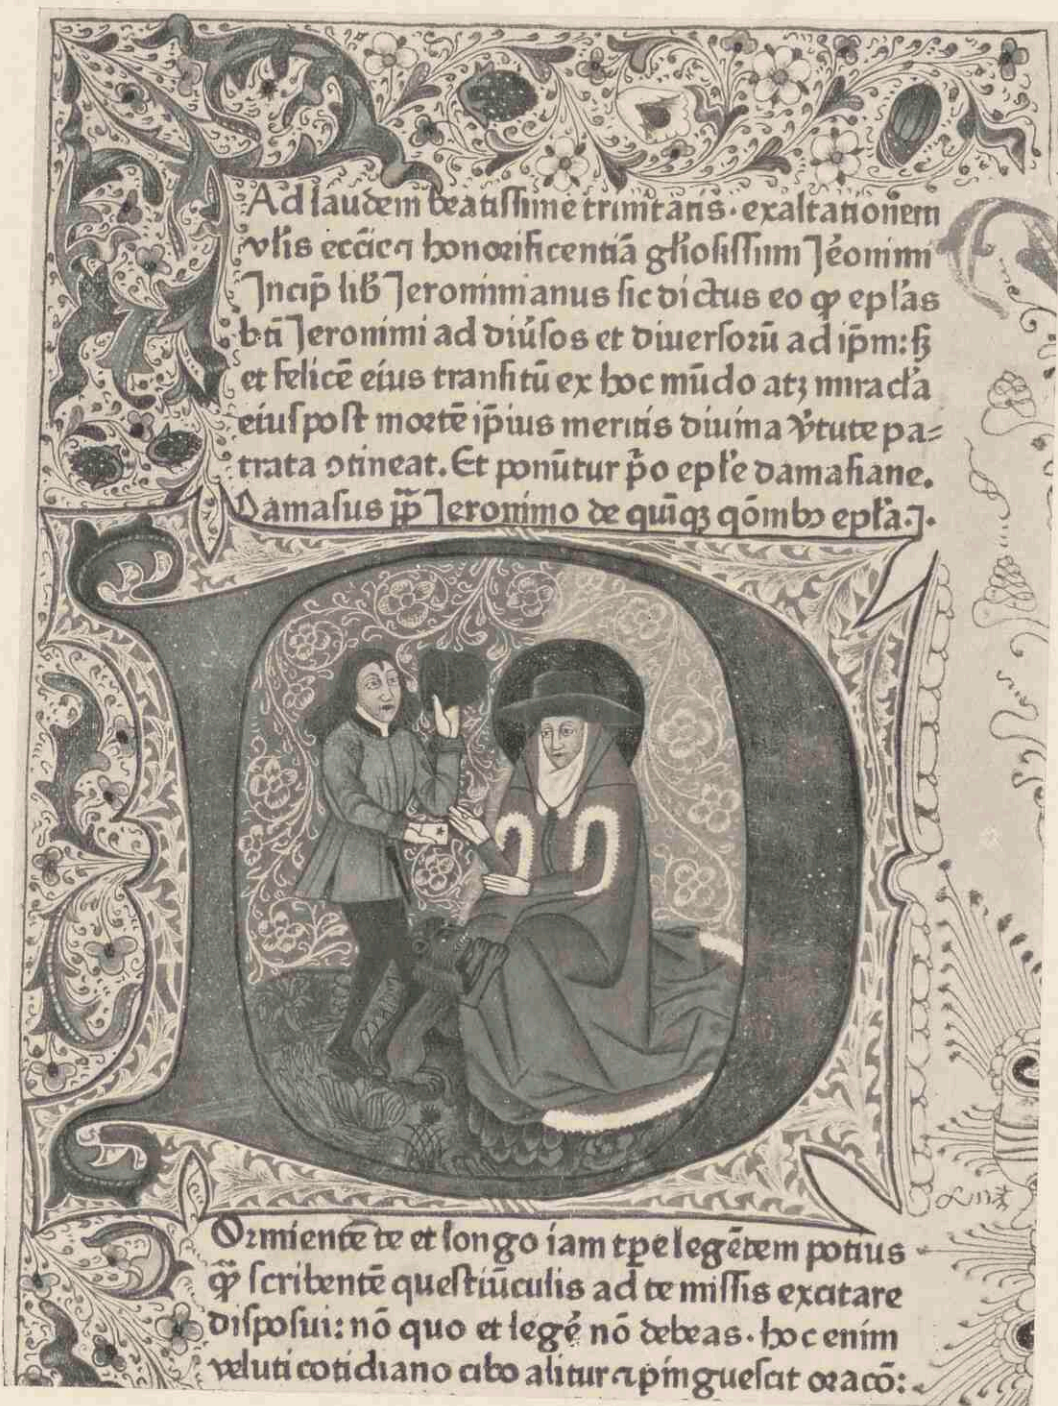 Ad laudem beatissime trinitatis · exaltationem
vl̄is ecc̄ie ⁊ honorificentiā gl̄iosissimi Jeronimi
Incip̄ lib̄ Jeronimianus sic dictus eo ꝙ ep̄las
bt̄i Jeronimi ad diūsos et diuersorū ad ip̄m: sꝫ
et felicē eius transitū ex hoc mūdo atꝫ miracl̄a
eius post mortē ip̄ius meritis diuina v̄tute pa=
trata ꝯtineat. Et ponūtur p̄o ep̄le damasiane.
Damasus pp̄ Jeronimo de quīqꝫ qōnibꝰ ep̄la.j.
Ormientē te et longo iam tꝑe legētem potius
qͣꝫ scribentē questiūculis ad te missis excitare
disposui: nō quo et legē nō debeas · hoc enim
veluti cotidiano cibo alitur ⁊ pinguescit oracō: